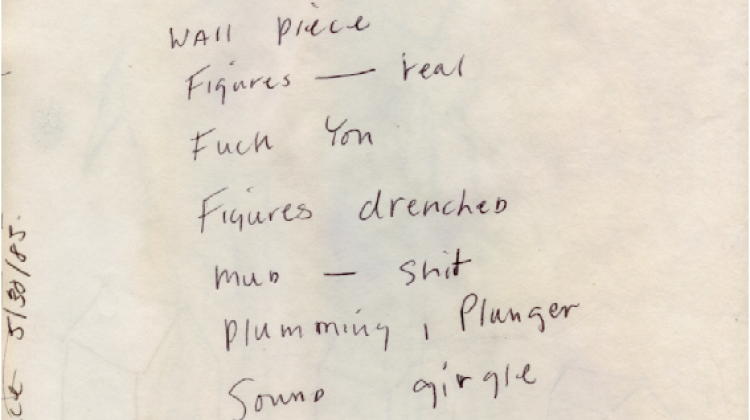 WAll piece
Figures — real
Fuck You
Figures drenched
MUD — Shit
Plumming, Plunger
Sound girgle
5/30/85.